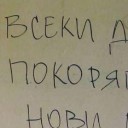 ВСЕКИ Д
ПОКОРЯ
НОВИ